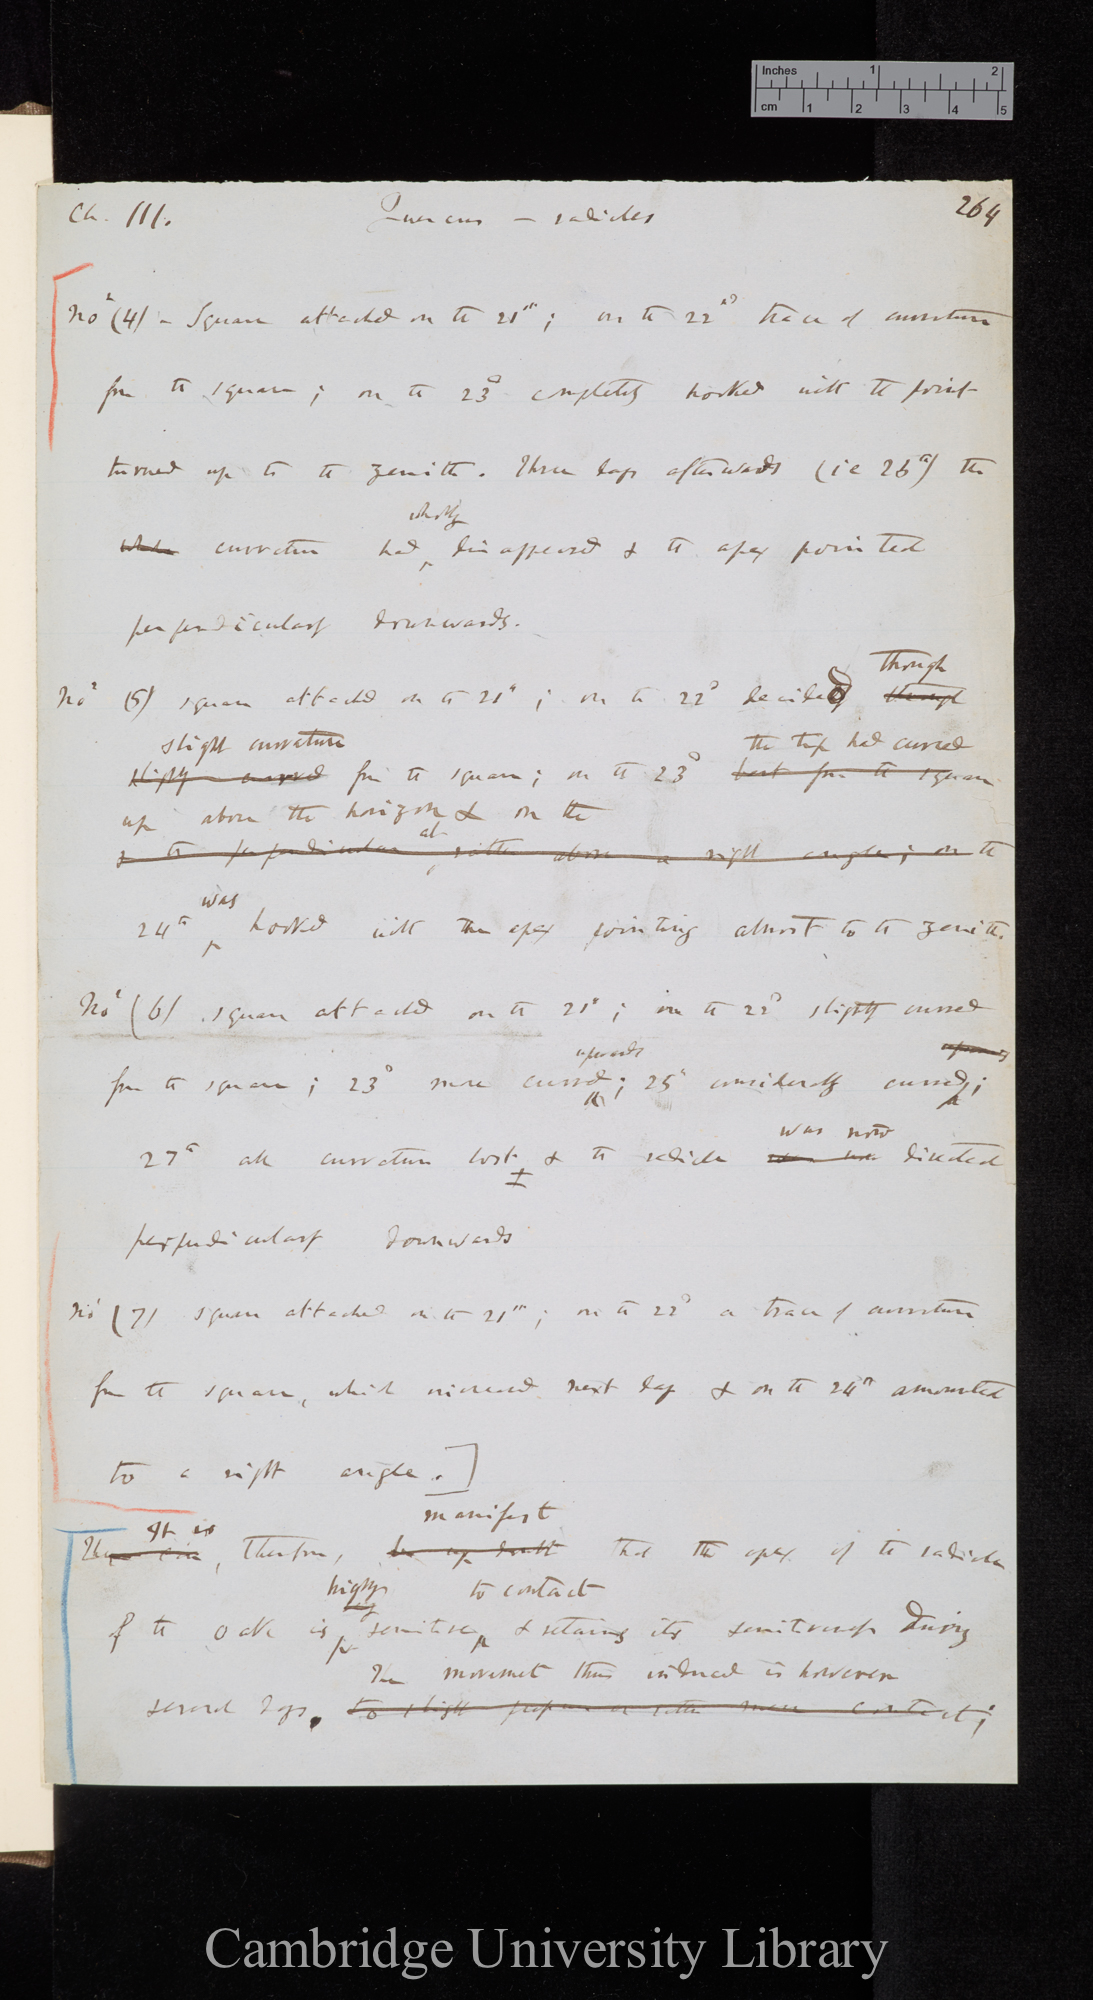 Inches 1 2
cm 1 2 3 4 5
Ch. III. Quercus — radicles 264
No (4) – Square attached on the 21st; on the 22d trace of curvature
from the square; on the 23d completely hooked with the point
turned up to the zenith. Three days afterwards (ie 26th) the
wholly
curvature had disappeared & the apex pointed
perpendicularly downwards.
though
No (5) square attached on the 21st; on the 22d decided though
slight curvature the tip had curved
slightly curved from the square; on the 23d bent from the square
up above the horizon & on the
at
& the perpendicular rather above a right angle; on the
was
24th hooked with the apex pointing almost to the zenith.
No (6) square attached on the 21st; on the 22d slightly curved
upwards upwards
from the square; 23d more curved; 25th considerably curved;
was now
27th all curvature lost & the radicle directed
perpendicularly downwards
No (7) square attached on the 21st; on the 22d a trace of curvature
from the square, which increased next day & on the 24th amounted
to a right angle.]
It is manifest
therefore, that the apex of the radicle
highly to contact
of the oak is sensitive & retains its sensitiveness during
The movement thus induced is however
several days. to slight pressure or rather mere contact;
Cambridge University Library